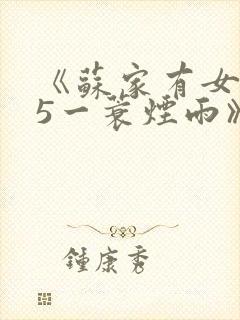 《蘇家有女
5一蓑煙雨》
鍾康秀